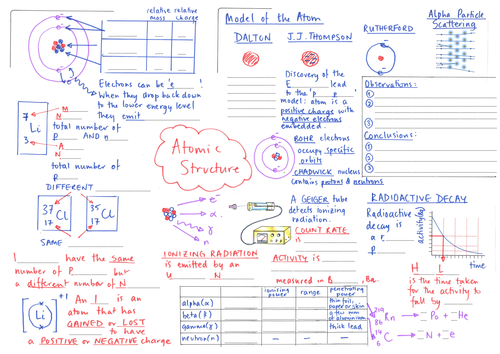 relative mass
relative charge
Electrons can be 'e______'.
When they drop back down
to the lower energy level
they emit
7
Li
3
M
N
total number of
P______ AND n______
A
N
total number of
P
DIFFERENT
37
17
Cl
35
17
Cl
SAME
I______ have the same
number of P______ but
a different number of N
Li
+1
An I______ is an
atom that has
GAINED or LOST
to have
a POSITIVE or NEGATIVE charge
Model of the Atom
DALTON
J.J. THOMPSON
RUTHERFORD
Alpha Particle
Scattering
Discovery of the
E______ lead
to the 'P______ P______'
model: atom is a
positive charge with
negative electrons
embedded.
BOHR electrons
occupy specific
orbits
CHADWICK nucleus
contains protons & neutrons
Observations:
①
②
③
Conclusions:
①
②
③
Atomic
Structure
e⁻
α
γ
n
IONIZING RADIATION
is emitted by an
U______ N______
A GEIGER tube
detects ionizing
radiation.
COUNT RATE
is
ACTIVITY is
measured in B______, Bq.
RADIOACTIVE DECAY
Radioactive
decay is
a r
P
activity (Bq)
time
H______ L______
is the time taken
for the activity to
fall by
ionising power
range
penetrating power
alpha (α)
thin foil, paper or skin
beta (β)
a few mm of aluminium
gamma (γ)
thick lead
neutron (n)
–
–
219
86
Rn → Po + He
14
6
C → N + e